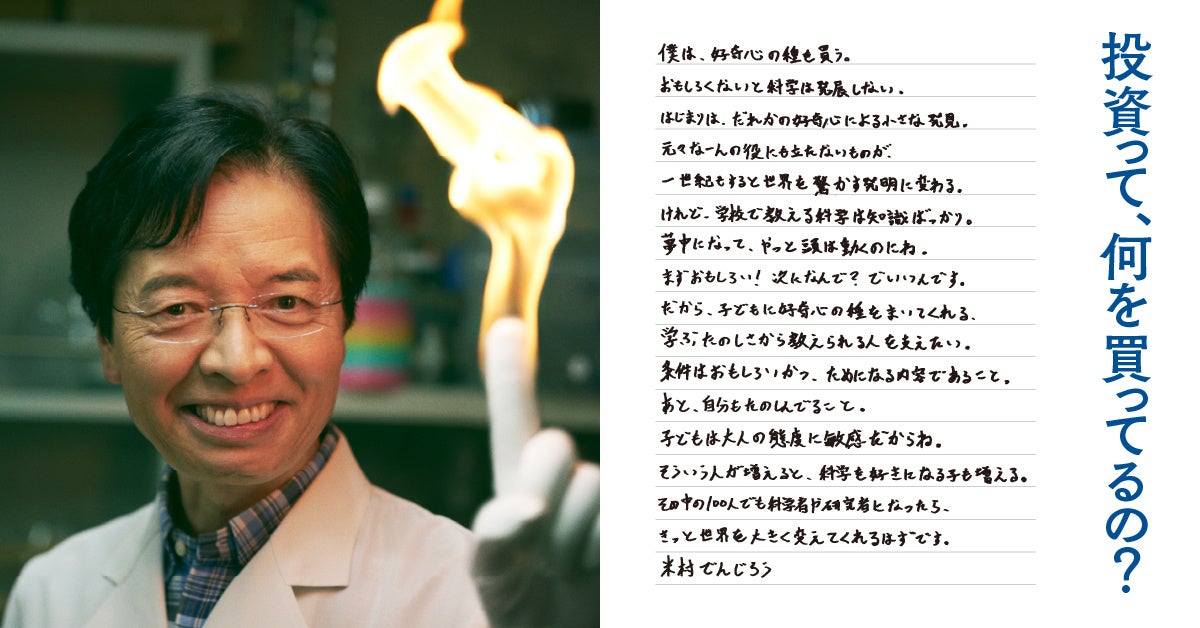 投資って、何を買ってるの？
僕は、好奇心の種を買う。
おもしろくないと科学は発展しない。
はじまりは、だれかの好奇心による小さな発見。
元々なーんの役にも立たないものが、
一世紀もすると世界を驚かす発明に変わる。
けれど、学校で教える科学は知識ばっかり。
夢中になって、やっと頭は動くのにね。
まずおもしろい！次になんで？でいいんです。
だから、子どもに好奇心の種をまいてくれる、
学ぶたのしさから教えられる人を支えたい。
条件はおもしろいかつ、ためになる内容であること。
あと、自分もたのしんでること。
子どもは大人の態度に敏感だからね。
そういう人が増えると、科学を好きになる子も増える。
その中の100人でも科学者や研究者となったら、
きっと世界を大きく変えてくれるはずです。
米村でんじろう